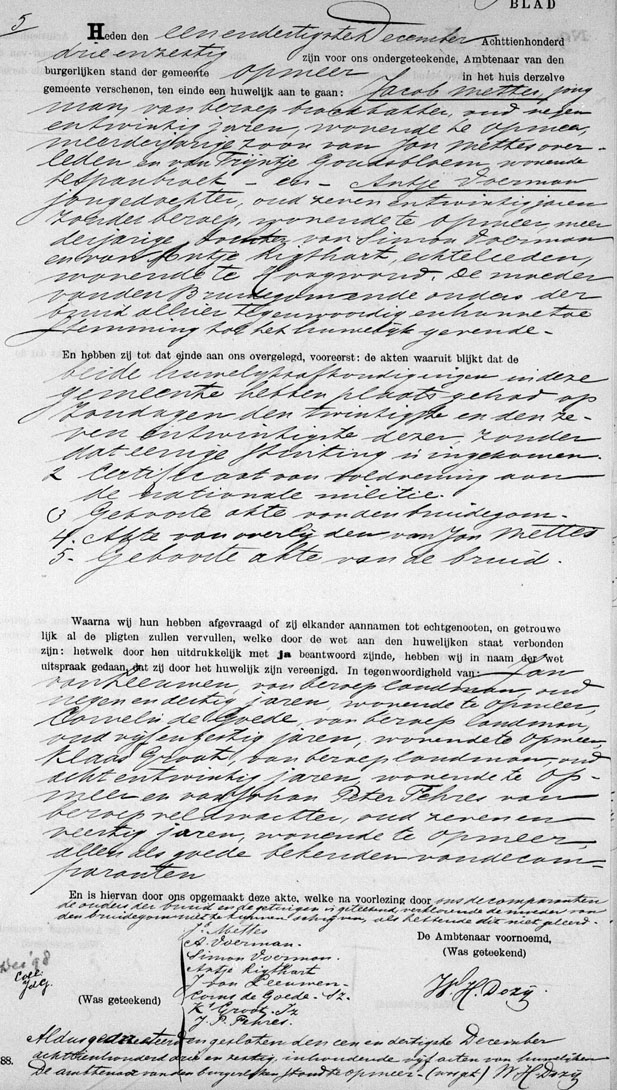 BLAD
5
Heden den eenendertigste December Achttienhonderd
drie en zestig zijn voor ons ondergeteekende, Ambtenaar van den
burgerlijken stand der gemeente Opmeer in het huis derzelve
gemeente verschenen, ten einde een huwelijk aan te gaan: Jacob Mettes, jong
man, van beroep , oud negen
entwintig jaren, wonende te Opmeer,
meerderjarige zoon van Jan Mettes over-
leden en van Trijntje Goudsbloem, wonende
te Spanbroek - en - Antje Voerman
jongedochter, oud zeven entwintig jaren
zonder beroep, wonende te Opmeer, meer
derjarige dochter van Simon Voerman
en van Antje Ligthart, echtelieden,
wonende te Hoogwoud. De moeder
van den Bruidegom en de ouders der
bruid alhier tegenwoordig en hunne toe
stemming tot het huwelijk gevende -
En hebben zij tot dat einde aan ons overgelegd, vooreerst: de akten waaruit blijkt dat de
beide huwelijksafkondigingen in deze
gemeente hebben plaats gehad op
Zondagen den twintigste en den ze-
ven entwintigste dezer, zonder
dat eenige stuiting is ingekomen.
2 Certificaat van voldoening aan
de nationale militie.
3 Geboorte akte van den bruidegom.
4. Akte van overlijden van Jan Mettes
5- Geboorte akte van de bruid.
Waarna wij hun hebben afgevraagd of zij elkander aannamen tot echtgenooten, en getrouwe
lijk al de pligten zullen vervullen, welke door de wet aan den huwelijken staat verbonden
zijn: hetwelk door hen uitdrukkelijk met ja beantwoord zijnde, hebben wij in naam der wet
uitspraak gedaan, dat zij door het huwelijk zijn vereenigd. In tegenwoordigheid van: Jan
van Leeuwen, van beroep landman, oud
negen en dertig jaren, wonende te Opmeer,
Cornelis de Goede, van beroep landman,
oud vijf en zestig jaren, wonende te Opmeer,
Klaas Groot, van beroep landman, oud
acht entwintig jaren, wonende te Op-
meer en van Johan Peter Fehres van
beroep veldwachter, oud zeven en
veertig jaren, wonende te Opmeer,
allen als goede bekenden van de com-
paranten
En is hiervan door ons opgemaakt deze akte, welke na voorlezing door ons de comparanten
de ouders der bruid en de getuigen is geteekend, verklarende de moeder van
den bruidegom niet te kunnen schrijven, als hebbende dit niet geleerd.
J. Mettes
A. Voerman.
Simon Voerman.
Antje Ligthart
J van Leeuwen.
Corns de Goede. Sz.
Ks Groot. Jz
J. P. Fehres.
(Was geteekend)
De Ambtenaar voornoemd,
(Was geteekend)
W. H. Dozij.
Coll.
Aldus geregistreerd en gesloten den een en dertigste December
achttienhonderd drie en zestig, inhoudende vijf acten van huwelijken
88. De ambtenaar van den burgerlijken stand te Opmeer (was get) W. H. Dozij